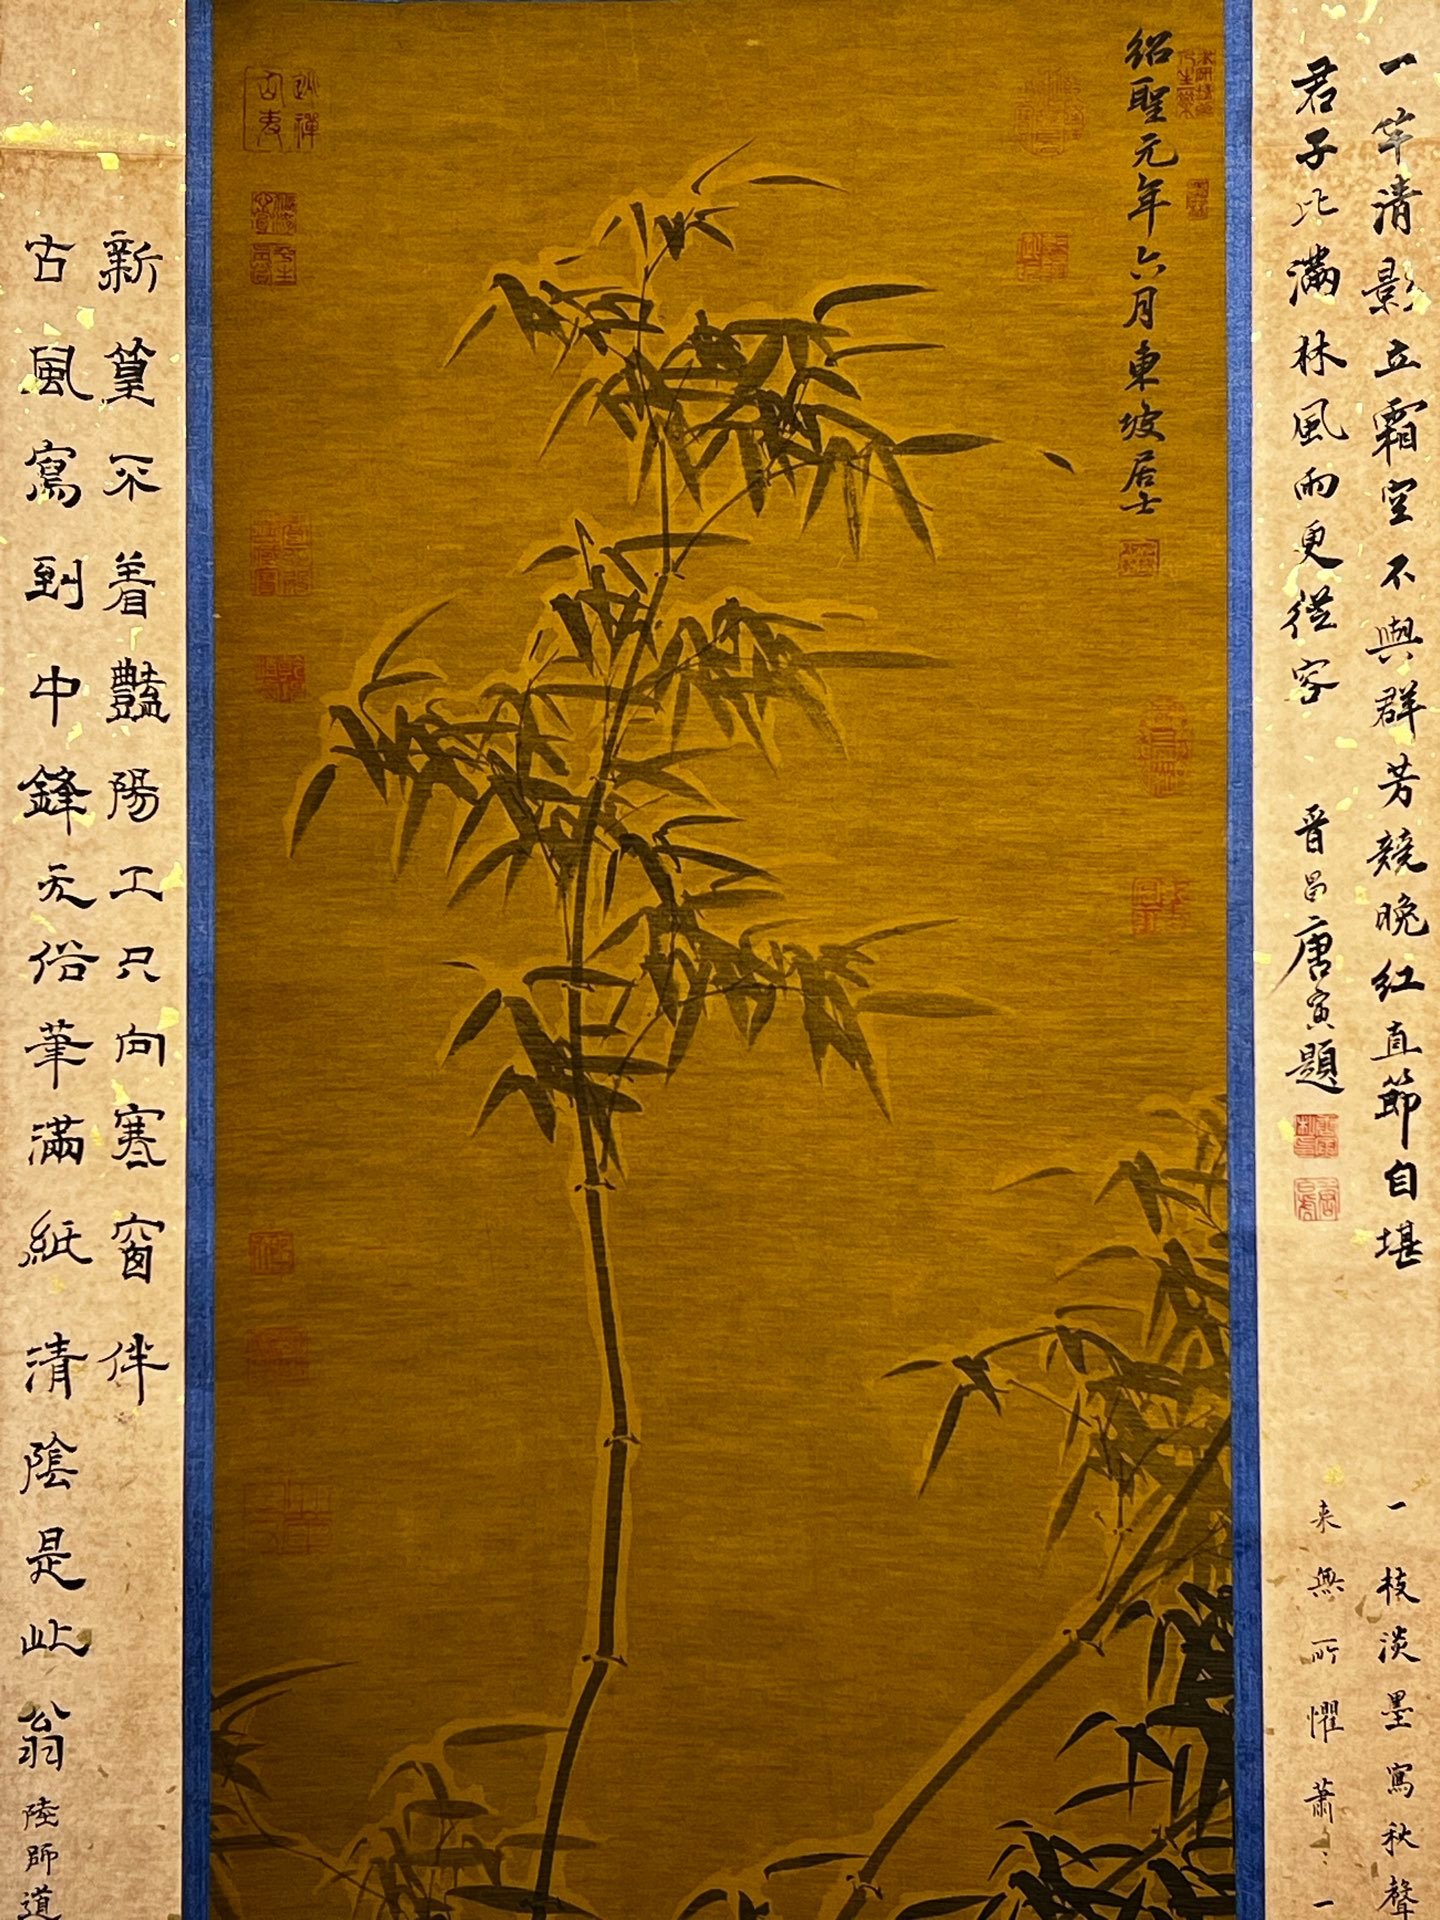 一竿清影立霜空不與群芳競晚紅直節自堪
君子比滿林風雨更從容
晋昌唐寅題
一枝淡墨寫秋聲
来無所懼蕭〻一
紹聖元年六月東坡居士
新篁不着豔陽工只向寒窗伴
古風寫到中鋒无俗筆滿紙清陰是此翁
陸師道